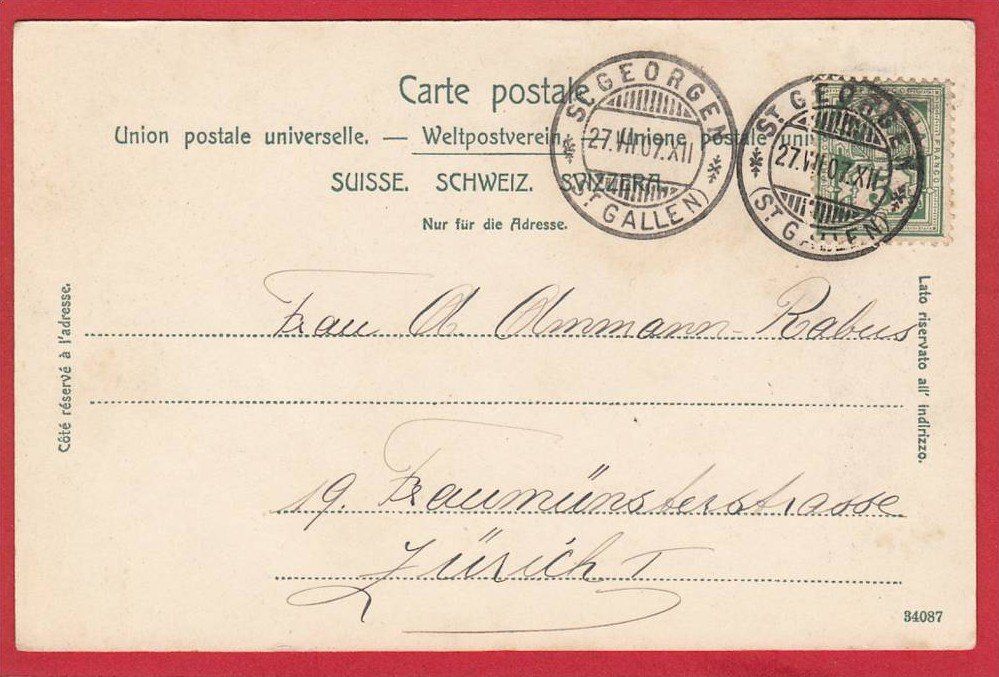 Carte postale.
Union postale universelle. — Weltpostverein. — Unione postale uni
SUISSE. SCHWEIZ. SVIZZERA.
Nur für die Adresse.
ST. GEORGEN
27.VII.07.XII
(ST GALLEN)
ST. GEORGEN
27.VII.07.XII
(ST GALLEN)
FRANCO
Côté réservé à l'adresse.
Lato riservato all' indirizzo.
Frau A. Ammann-Rabus
19. Fraumünsterstrasse
Zürich I
34087